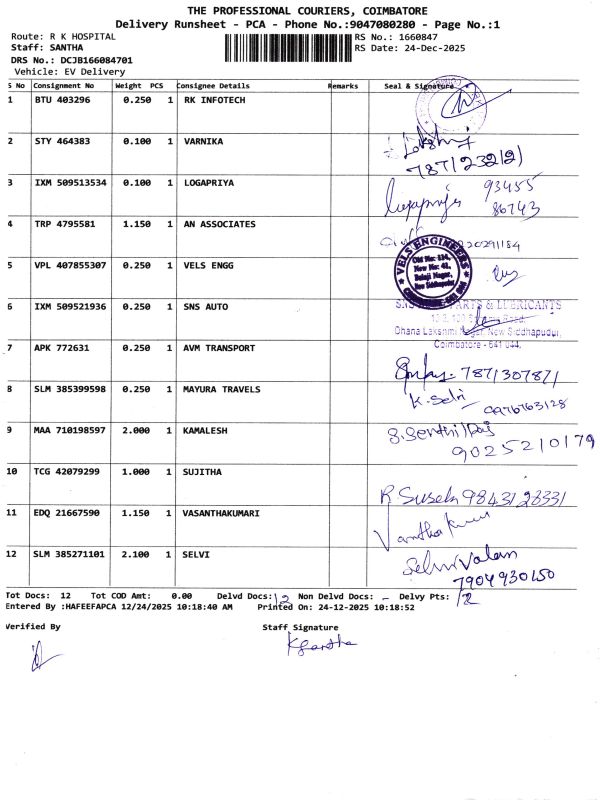 THE PROFESSIONAL COURIERS, COIMBATORE
Delivery Runsheet - PCA - Phone No.:9047080280 - Page No.:1
Route: R K HOSPITAL RS No.: 1660847
Staff: SANTHA RS Date: 24-Dec-2025
DRS No.: DCJB166084701
Vehicle: EV Delivery
S No Consignment No Weight PCS Consignee Details Remarks Seal & Signature
1 BTU 403296 0.250 1 RK INFOTECH
2 STY 464383 0.100 1 VARNIKA
7871232121
3 IXM 509513534 0.100 1 LOGAPRIYA
Logapriya 93455
86743
4 TRP 4795581 1.150 1 AN ASSOCIATES
VELS ENGINEERS
Old No: 114,
New No: 41,
Balaji Nagar,
New Siddhapudur
5 VPL 407855307 0.250 1 VELS ENGG
6 IXM 509521936 0.250 1 SNS AUTO
SNS PARTS & LUBRICANTS
Dhana Lakshmi Nagar, New Siddhapudur,
Coimbatore - 641 044.
7 APK 772631 0.250 1 AVM TRANSPORT
7871307871
8 SLM 385399598 0.250 1 MAYURA TRAVELS
K. Selvi
9976763128
9 MAA 710198597 2.000 1 KAMALESH
S. Senthil Raj
9025210179
10 TCG 42079299 1.000 1 SUJITHA
R Susela 9843128331
11 EDQ 21667590 1.150 1 VASANTHAKUMARI
12 SLM 385271101 2.100 1 SELVI
7904930150
Tot Docs: 12 Tot COD Amt: 0.00 Delvd Docs: 12 Non Delvd Docs: - Delvy Pts: 12
Entered By :HAFEEFAPCA 12/24/2025 10:18:40 AM Printed On: 24-12-2025 10:18:52
Verified By Staff Signature
K Santha